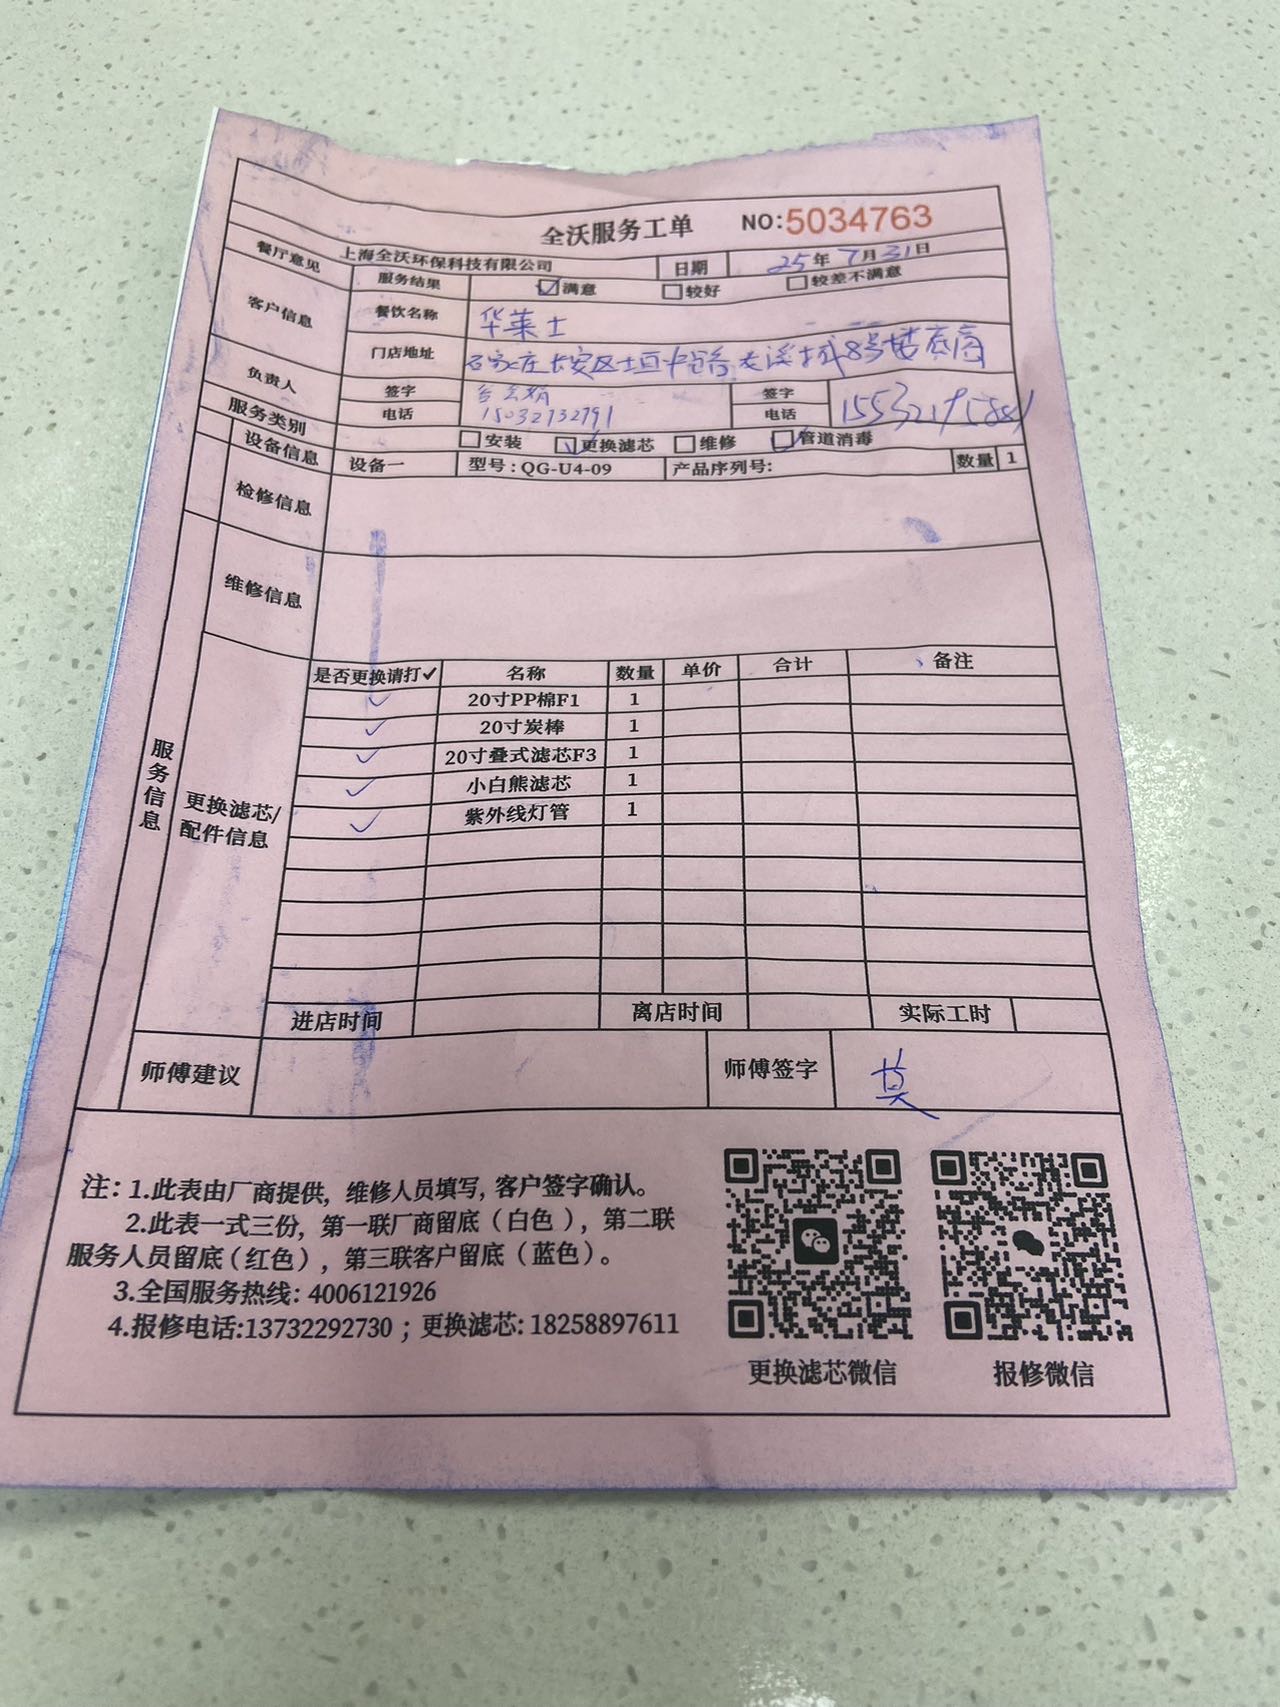 全沃服务工单 NO:5034763
上海全沃环保科技有限公司 日期 25年7月31日
餐厅意见 服务结果 ☑满意 □较好 □较差不满意
客户信息 餐饮名称 华莱士
门店地址 石家庄长安区 8号楼底商
负责人 签字 签字
电话 15032732791 电话
服务类别 □安装 ☑更换滤芯 □维修 ☑管道消毒
设备信息 设备一 型号:QG-U4-09 产品序列号: 数量 1
检修信息
维修信息
服务信息
更换滤芯/配件信息
是否更换请打✓ 名称 数量 单价 合计 备注
✓ 20寸PP棉F1 1
✓ 20寸炭棒 1
✓ 20寸叠式滤芯F3 1
✓ 小白熊滤芯 1
✓ 紫外线灯管 1
进店时间 离店时间 实际工时
师傅建议 师傅签字 莫
注:1.此表由厂商提供,维修人员填写,客户签字确认。
2.此表一式三份,第一联厂商留底(白色),第二联
服务人员留底(红色),第三联客户留底(蓝色)。
3.全国服务热线:4006121926
4.报修电话:13732292730;更换滤芯:18258897611
更换滤芯微信 报修微信